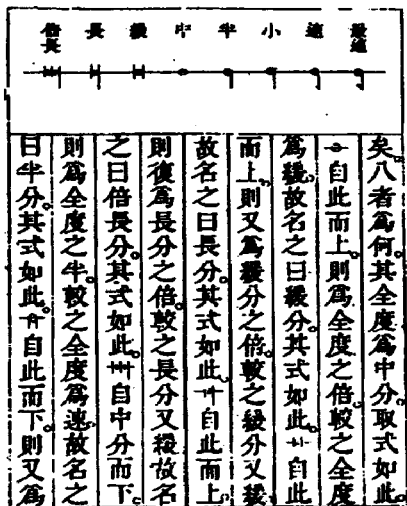 最速 速 小 半 中 緩 長 倍長
矣八者爲何。其全度爲中分。取式如此。
自此而上。則爲全度之倍。較之全度
爲緩。故名之曰緩分。其式如此。自此
而上。則又爲緩分之倍。較之緩分又緩。
故名之曰長分。其式如此。自此而上。
則復爲長分之倍。較之長分又緩。故名
之曰倍長分。其式如此。自中分而下。
則爲全度之半。較之全度爲速。故名之
曰半分。其式如此。自此而下。則又爲